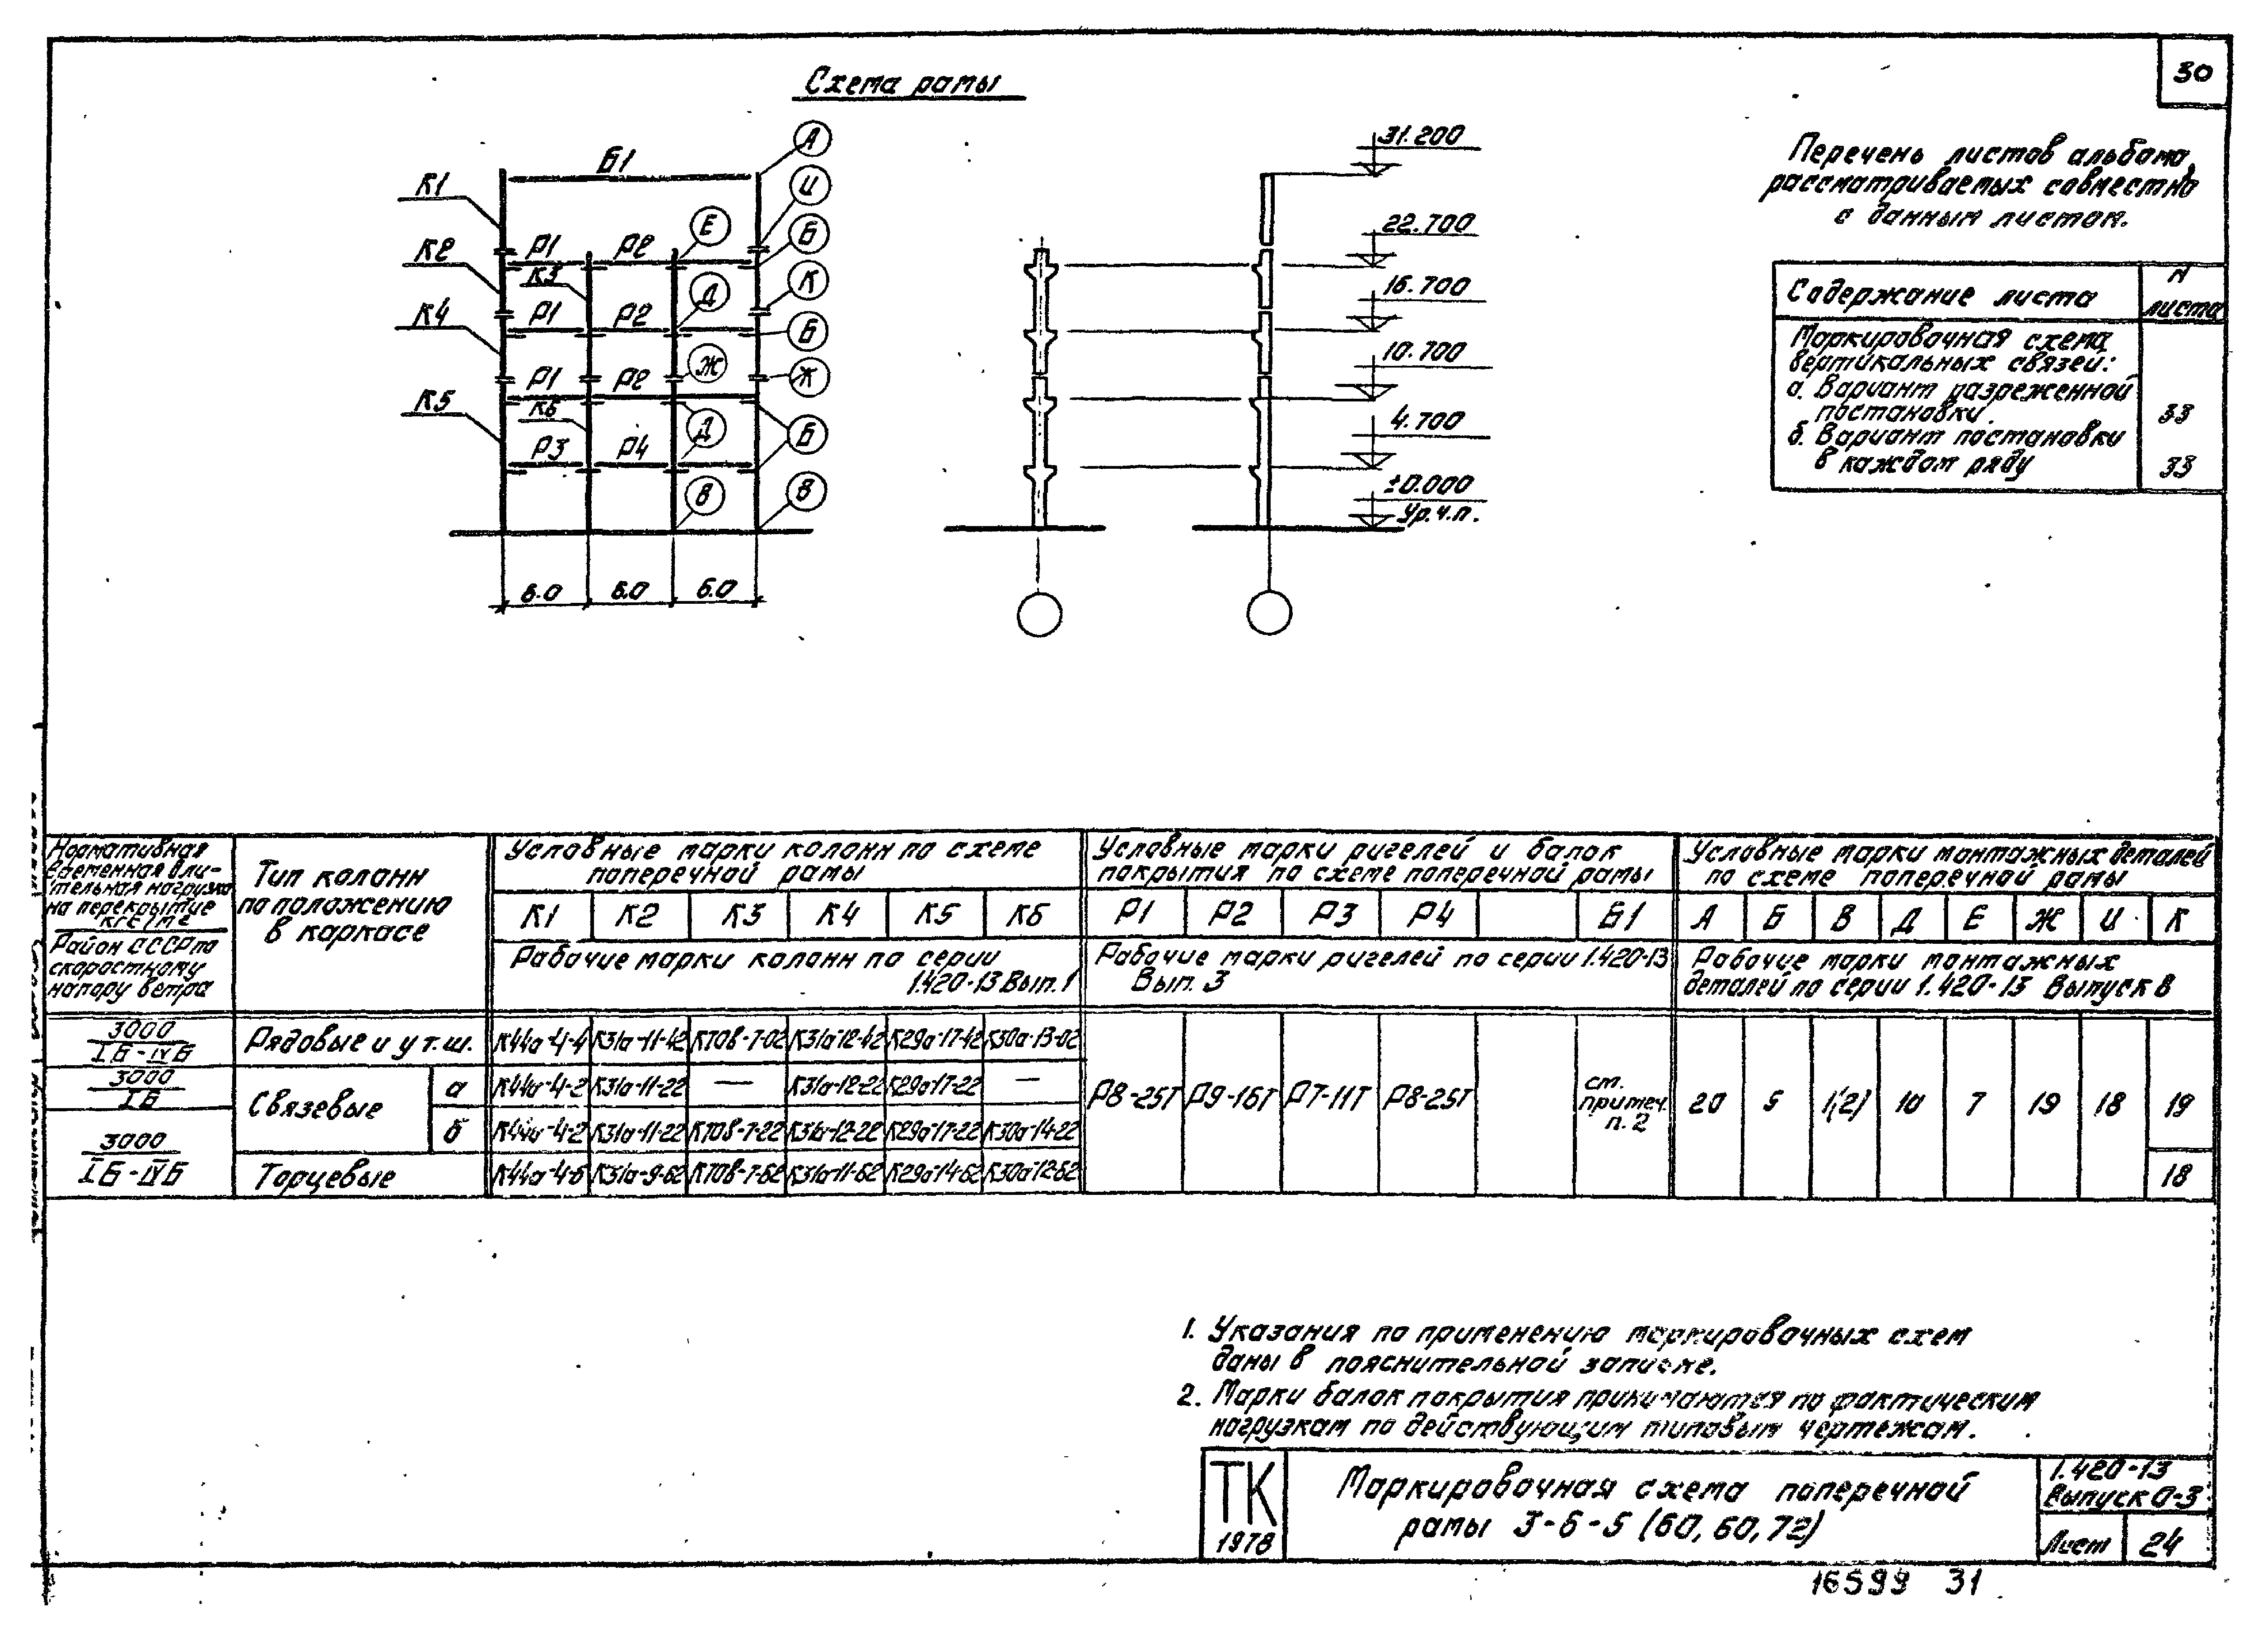 30
Схема рамы
Б1
К1
К2
К4
К5
Р1
Р2
К3
Р1
Р2
Р1
Р2
К6
Р3
Р4
А
И
Е
Б
К
Д
Б
Ж
Ж
Д
Б
В
В
6.0
6.0
6.0
31.200
22.700
16.700
10.700
4.700
±0.000
Ур.ч.п.
Перечень листов альбома,
рассматриваемых совместно
с данным листом.
Содержание листа
N
листа
Маркировочная схема
вертикальных связей:
а. Вариант разреженной
постановки.
33
б. Вариант постановки
в каждом ряду
33
Нормативная
временная дли-
тельная нагрузка
на перекрытие
кгс/м2
Район СССР по
скоростному
напору ветра
Тип колонн
по положению
в каркасе
Условные марки колонн по схеме
поперечной рамы
К1 К2 К3 К4 К5 К6
Рабочие марки колонн по серии
1.420-13 Вып.1
Условные марки ригелей и балок
покрытия по схеме поперечной рамы
Р1 Р2 Р3 Р4 Б1
Рабочие марки ригелей по серии 1.420-13
Вып. 3
Условные марки монтажных деталей
по схеме поперечной рамы
А Б В Д Е Ж И К
Рабочие марки монтажных
деталей по серии 1.420-13 Выпуск 8
3000
IБ-IVБ
Рядовые и у т.ш.
К44а-4-4 К31а-11-42 К70в-7-02 К31а-12-42 К29а-17-42 К30а-13-02
3000
IБ
Связевые
а
К44а-4-2 К31а-11-22 — К31а-12-22 К29а-17-22 —
б
К44а-4-2 К31а-11-22 К70в-7-22 К31а-12-22 К29а-17-22 К30а-14-22
3000
IБ-IVБ
Торцевые
К44а-4-6 К31а-9-62 К70в-7-62 К31а-11-62 К29а-14-62 К30а-12-62
Р8-25Т Р9-16Т Р7-11Т Р8-25Т
см.
примеч.
п. 2
20 5 1(2) 10 7 19 18 19
18
1. Указания по применению маркировочных схем
даны в пояснительной записке.
2. Марки балок покрытия принимаются по фактическим
нагрузкам по действующим типовым чертежам.
ТК
1978
Маркировочная схема поперечной
рамы 3-6-5 (60, 60, 72)
1.420-13
Выпуск 0-3
Лист 24
16599 31